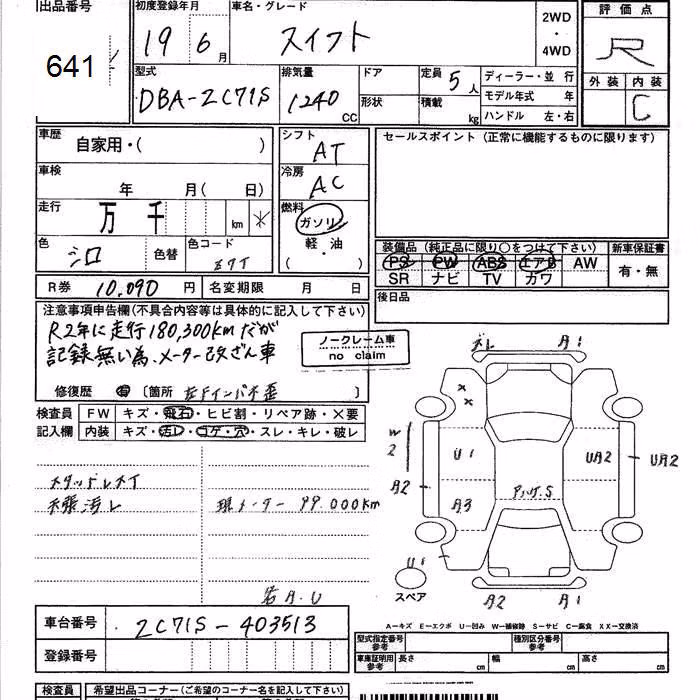 出品番号 初度登録年月 車名・グレード 2WD 評価点
641 19 6月 スイフト ・ R
4WD 外装 内装
型式 排気量 ドア 定員 5人 ディーラー・並 行 C
DBA-ZC71S 1240 CC 形状 積載 kg モデル年式 年
ハンドル 左・右
車歴 シフト セールスポイント (正常に機能するものに限ります)
自家用・( ) AT
車検 冷房
年 月( 日) AC
走行 燃料
万 千 km ガソリン
色 色替 色コード 軽・油 装備品 (純正品に限り○をつけて下さい) 新車保証書
シロ ( ) PS PW ABS エアB AW 有・無
R券 10,090 円 名変期限 月 日 SR ナビ TV カワ
後日品
注意事項申告欄(不具合内容等は具体的に記入して下さい)
R2年に走行180,300kmだが
記録無い為、メーター改ざん車 ノークレーム車
no claim
修復歴 有 〔箇所 左Fインパネ歪 〕
検査員 FW キズ・飛石・ヒビ割・リペア跡・×要
記入欄 内装 キズ・汚レ・コゲ・穴・スレ・キレ・破レ
スタッドレス
天張汚レ 現メーター 99,000km
若A.U
ズレ A1
W2 U1 UA2 UA2
A2 A3 S
U1
スペア A2 A1
A−キズ E−エクボ U−凹み W−補修跡 S−サビ C−腐食 XX−交換済
車台番号 ZC71S-403513 型式指定番号 参考 種別区分番号 参考
登録番号 車庫証明用 参考 長さ cm 幅 cm 高さ cm
検査員 希望出品コーナー(ご希望のコーナー名を記入して下さい)